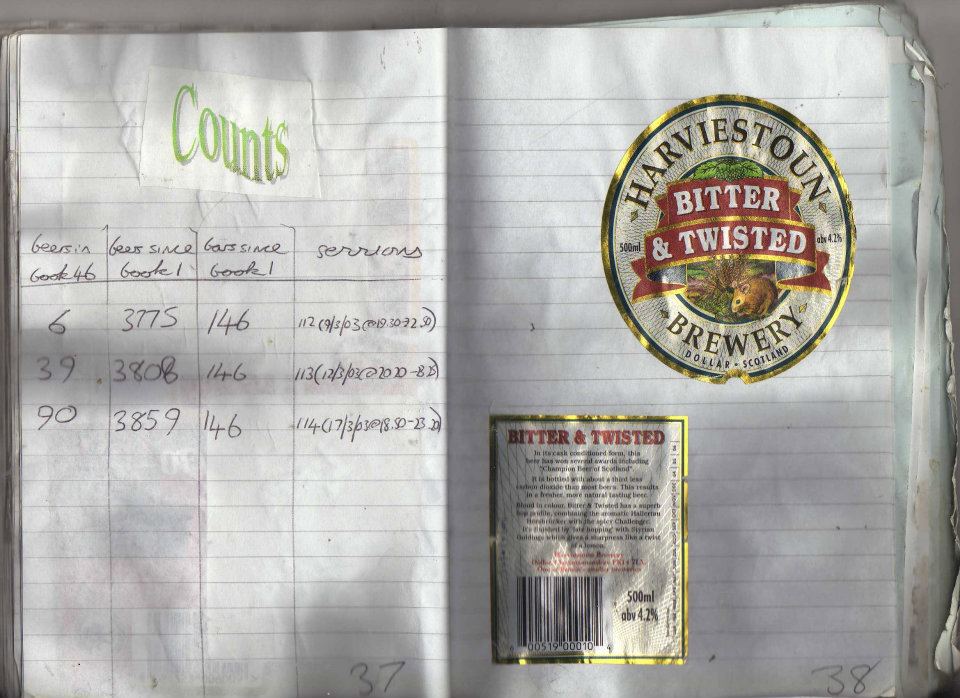 Counts
beers in book 46
beers since book 1
bars since book 1
sessions
6 3775 146 112 (9/3/03 @ 19.30-22.50)
39 3808 146 113 (12/3/03 @ 20.20-
90 3859 146 114 (17/3/03 @ 18.50-23.20)
37
HARVIESTOUN
BITTER
& TWISTED
500ml
abv 4.2%
BREWERY
DOLLAR • SCOTLAND
BITTER & TWISTED
In its cask conditioned form, this
beer has won several awards including
"Champion Beer of Scotland"
It is bottled with about a third less
carbon dioxide than most beers. This results
in a fresher, more natural tasting beer.
Blond in colour, Bitter & Twisted has a superb
hop profile, combining the aromatic Hallertau
Hersbrücker with the spicy Challenger.
It's finished by 'late hopping' with Styrian
Goldings which gives a sharpness like a twist
of a lemon.
Harviestoun Brewery
Dollar, Clackmannanshire FK14 7LX
One of Britain's smaller breweries
500ml
abv 4.2%
00519 00010 4
38